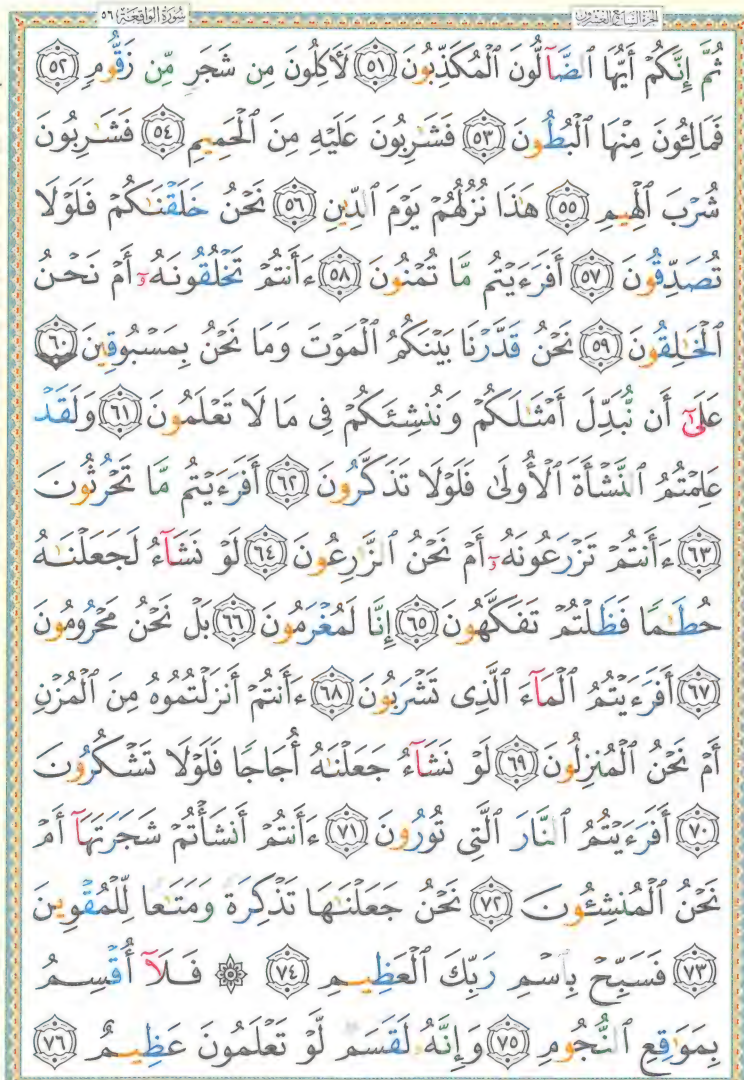 الجزء السابع والعشرون
سُورَةُ الوَاقِعَة ٥٦
ثُمَّ إِنَّكُمْ أَيُّهَا ٱلضَّآلُّونَ ٱلْمُكَذِّبُونَ ٥١ لَأٓكِلُونَ مِن شَجَرٍ مِّن زَقُّومٍ ٥٢
فَمَالِـُٔونَ مِنْهَا ٱلْبُطُونَ ٥٣ فَشَـٰرِبُونَ عَلَيْهِ مِنَ ٱلْحَمِيمِ ٥٤ فَشَـٰرِبُونَ
شُرْبَ ٱلْهِيمِ ٥٥ هَـٰذَا نُزُلُهُمْ يَوْمَ ٱلدِّينِ ٥٦ نَحْنُ خَلَقْنَـٰكُمْ فَلَوْلَا
تُصَدِّقُونَ ٥٧ أَفَرَءَيْتُم مَّا تُمْنُونَ ٥٨ ءَأَنتُمْ تَخْلُقُونَهُۥٓ أَمْ نَحْنُ
ٱلْخَـٰلِقُونَ ٥٩ نَحْنُ قَدَّرْنَا بَيْنَكُمُ ٱلْمَوْتَ وَمَا نَحْنُ بِمَسْبُوقِينَ ٦٠
عَلَىٰٓ أَن نُّبَدِّلَ أَمْثَـٰلَكُمْ وَنُنشِئَكُمْ فِى مَا لَا تَعْلَمُونَ ٦١ وَلَقَدْ
عَلِمْتُمُ ٱلنَّشْأَةَ ٱلْأُولَىٰ فَلَوْلَا تَذَكَّرُونَ ٦٢ أَفَرَءَيْتُم مَّا تَحْرُثُونَ
٦٣ ءَأَنتُمْ تَزْرَعُونَهُۥٓ أَمْ نَحْنُ ٱلزَّٰرِعُونَ ٦٤ لَوْ نَشَآءُ لَجَعَلْنَـٰهُ
حُطَـٰمًا فَظَلْتُمْ تَفَكَّهُونَ ٦٥ إِنَّا لَمُغْرَمُونَ ٦٦ بَلْ نَحْنُ مَحْرُومُونَ
٦٧ أَفَرَءَيْتُمُ ٱلْمَآءَ ٱلَّذِى تَشْرَبُونَ ٦٨ ءَأَنتُمْ أَنزَلْتُمُوهُ مِنَ ٱلْمُزْنِ
أَمْ نَحْنُ ٱلْمُنزِلُونَ ٦٩ لَوْ نَشَآءُ جَعَلْنَـٰهُ أُجَاجًا فَلَوْلَا تَشْكُرُونَ
٧٠ أَفَرَءَيْتُمُ ٱلنَّارَ ٱلَّتِى تُورُونَ ٧١ ءَأَنتُمْ أَنشَأْتُمْ شَجَرَتَهَآ أَمْ
نَحْنُ ٱلْمُنشِـُٔونَ ٧٢ نَحْنُ جَعَلْنَـٰهَا تَذْكِرَةً وَمَتَـٰعًا لِّلْمُقْوِينَ
٧٣ فَسَبِّحْ بِٱسْمِ رَبِّكَ ٱلْعَظِيمِ ٧٤ ۞ فَلَآ أُقْسِمُ
بِمَوَٰقِعِ ٱلنُّجُومِ ٧٥ وَإِنَّهُۥ لَقَسَمٌ لَّوْ تَعْلَمُونَ عَظِيمٌ ٧٦